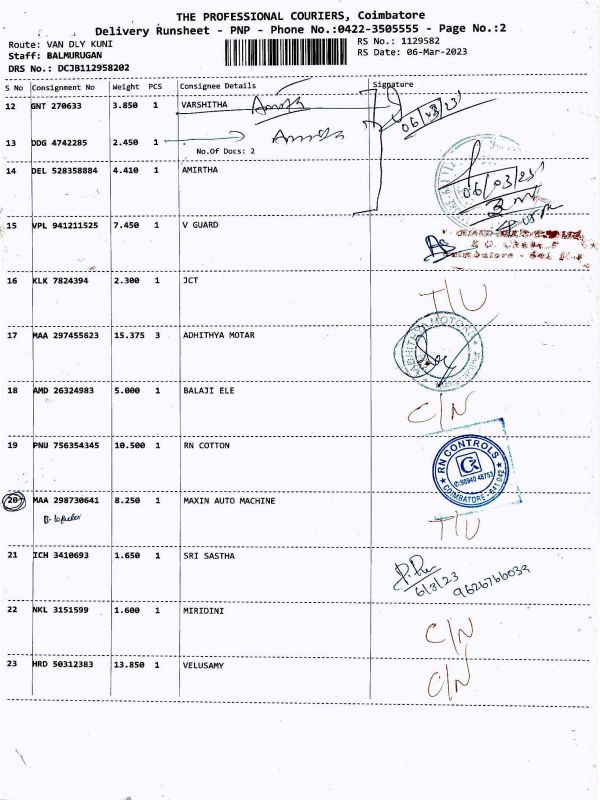 THE PROFESSIONAL COURIERS, Coimbatore
Delivery Runsheet - PNP - Phone No.:0422-3505555 - Page No.:2
Route: VAN DLY KUNI
RS No.: 1129582
Staff: BALMURUGAN
RS Date: 06-Mar-2023
DRS No.: DCJB112958202
S No Consignment No Weight PCS Consignee Details Signature
12 GNT 270633 3.850 1 VARSHITHA
06/03/23
13 DDG 4742285 2.450 1
No.Of Docs: 2
14 DEL 528358884 4.410 1 AMIRTHA
06/03/23
15 VPL 941211525 7.450 1 V GUARD
16 KLK 7824394 2.300 1 JCT
T/U
17 MAA 297455623 15.375 3 ADHITHYA MOTAR
18 AMD 26324983 5.000 1 BALAJI ELE
C/N
19 PNU 756354345 10.500 1 RN COTTON
RN CONTROLS
COIMBATORE - 641 042
20 MAA 298730641 8.250 1 MAXIN AUTO MACHINE
T/U
21 ICH 3410693 1.650 1 SRI SASTHA
6/3/23
22 NKL 3151599 1.600 1 MIRIDINI
C/N
23 HRD 50312383 13.850 1 VELUSAMY
C/N